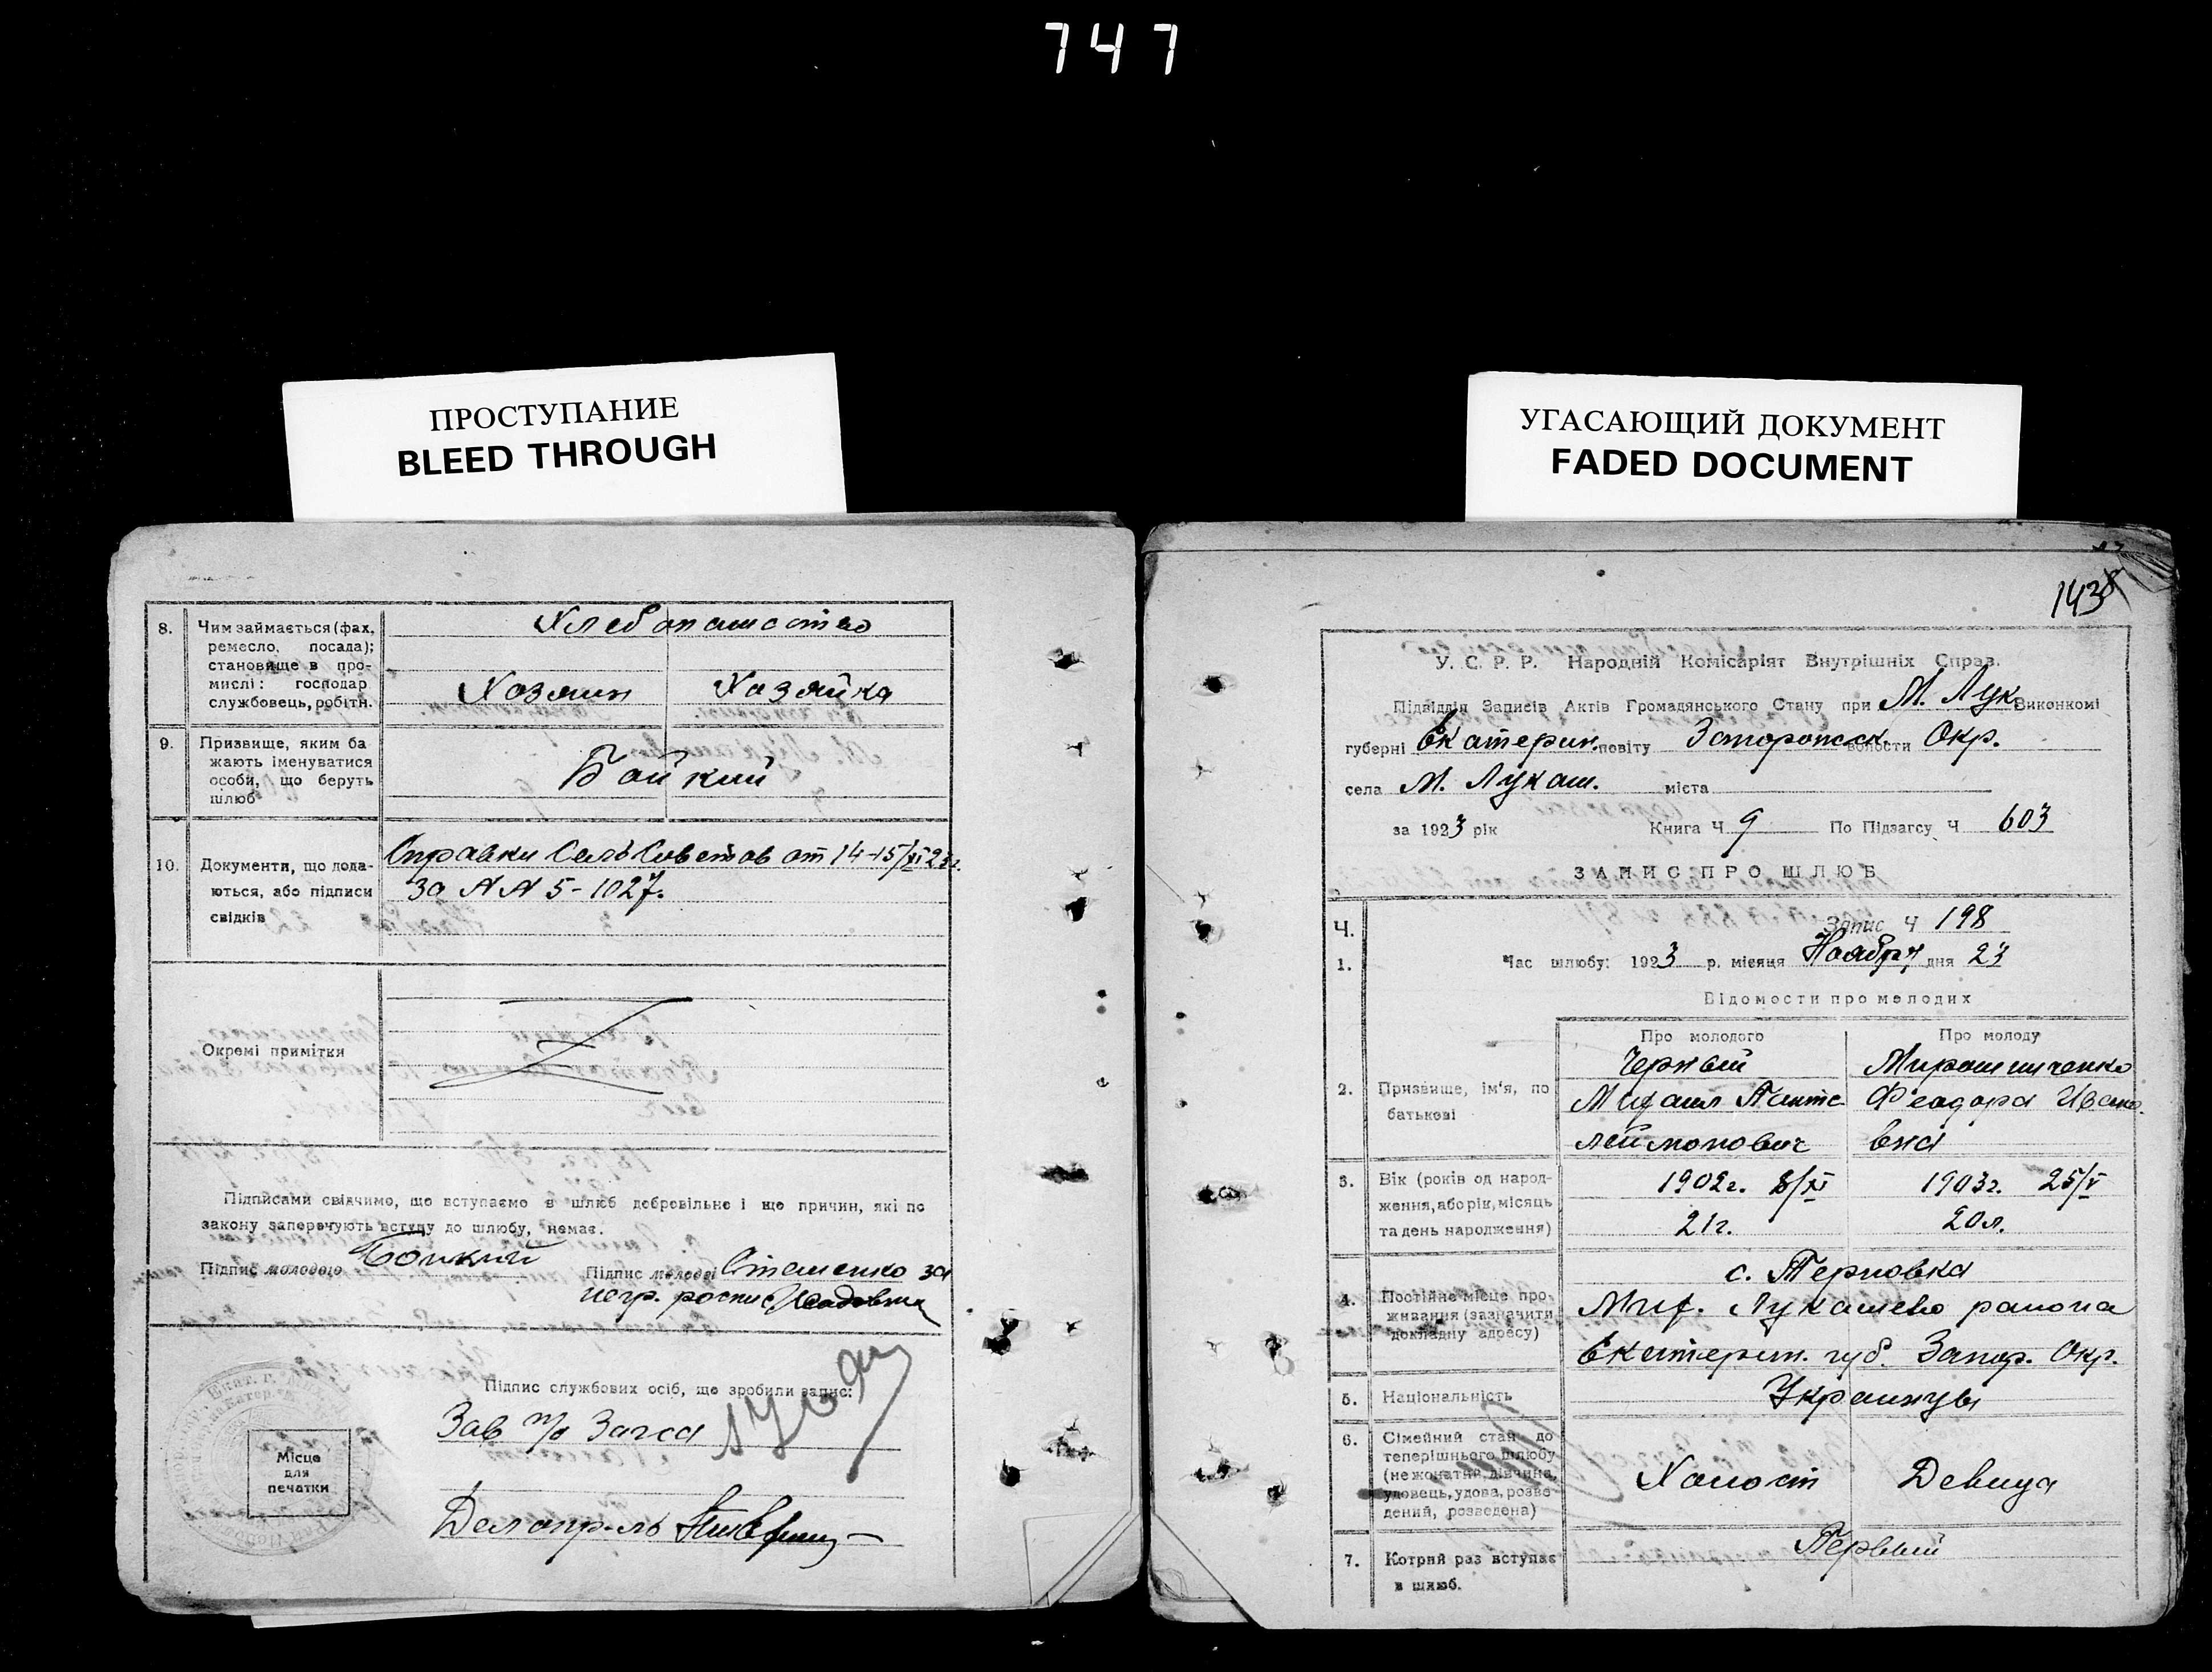 747
ПРОСТУПАНИЕ
BLEED THROUGH
УГАСАЮЩИЙ ДОКУМЕНТ
FADED DOCUMENT
8. Чим займається (фах, ремесло, посада); становище в промислі: господар службовець, робітн.
Хлебопашество
Хозяин Хозяйка
9. Призвище, яким ба
жають іменуватися
особи, що беруть
шлюб
Бойкий
10. Документи, що дода-
ються, або підписи
свідків
Справки СельСоветов от 14-15/XI 23г.
за NN 5-1027.
Окремі примітки
Підписами свідчимо, що вступаємо в шлюб добровільно і що причин, які по
закону заперечують вступу до шлюбу, немає.
Підпис молодого Бойкий Підпис молодої Стешенко за
негр. роспис
Підпис службових осіб, що зробили запис:
Зав п/о Загса
Місце
для
печатки
Делопр-ль
1438
У. С. Р. Р. Народній Комісаріят Внутрішніх Справ.
Підвідділ Записів Актів Громадянського Стану при М. Лук. Виконкомі
губерні Екатерин. повіту Запорожск волости Окр.
села М. Лукаш. міста
за 1923 рік Книга Ч 9 По Підзагсу Ч 603
ЗАПИС ПРО ШЛЮБ
Ч. Запис Ч 198
1. Час шлюбу: 1923 р. місяця Ноября дня 23
Відомости про молодих
Про молодого Про молоду
Черный Мирошниченко
2. Призвище, ім'я, по
батькові
Михаил Панте Феодора Ивано
леймонович вна
3. Вік (років од народ-
ження, або рік, місяць
та день народження)
1902г. 8/XI 1903г. 25/V
21г. 20л.
с. Терновка
4. Постійне місце про-
живання (зазначити
докладну адресу)
Мих. Лукашево района
Екатерин. губ. Запор. Окр.
5. Національність Украинцы
6. Сімейний стан до
теперішнього шлюбу
(не жонатий, дівчина,
удовець, удова, розве
дений, розведена)
Холост Девица
7. Котрий раз вступає
в шлюб.
Первый